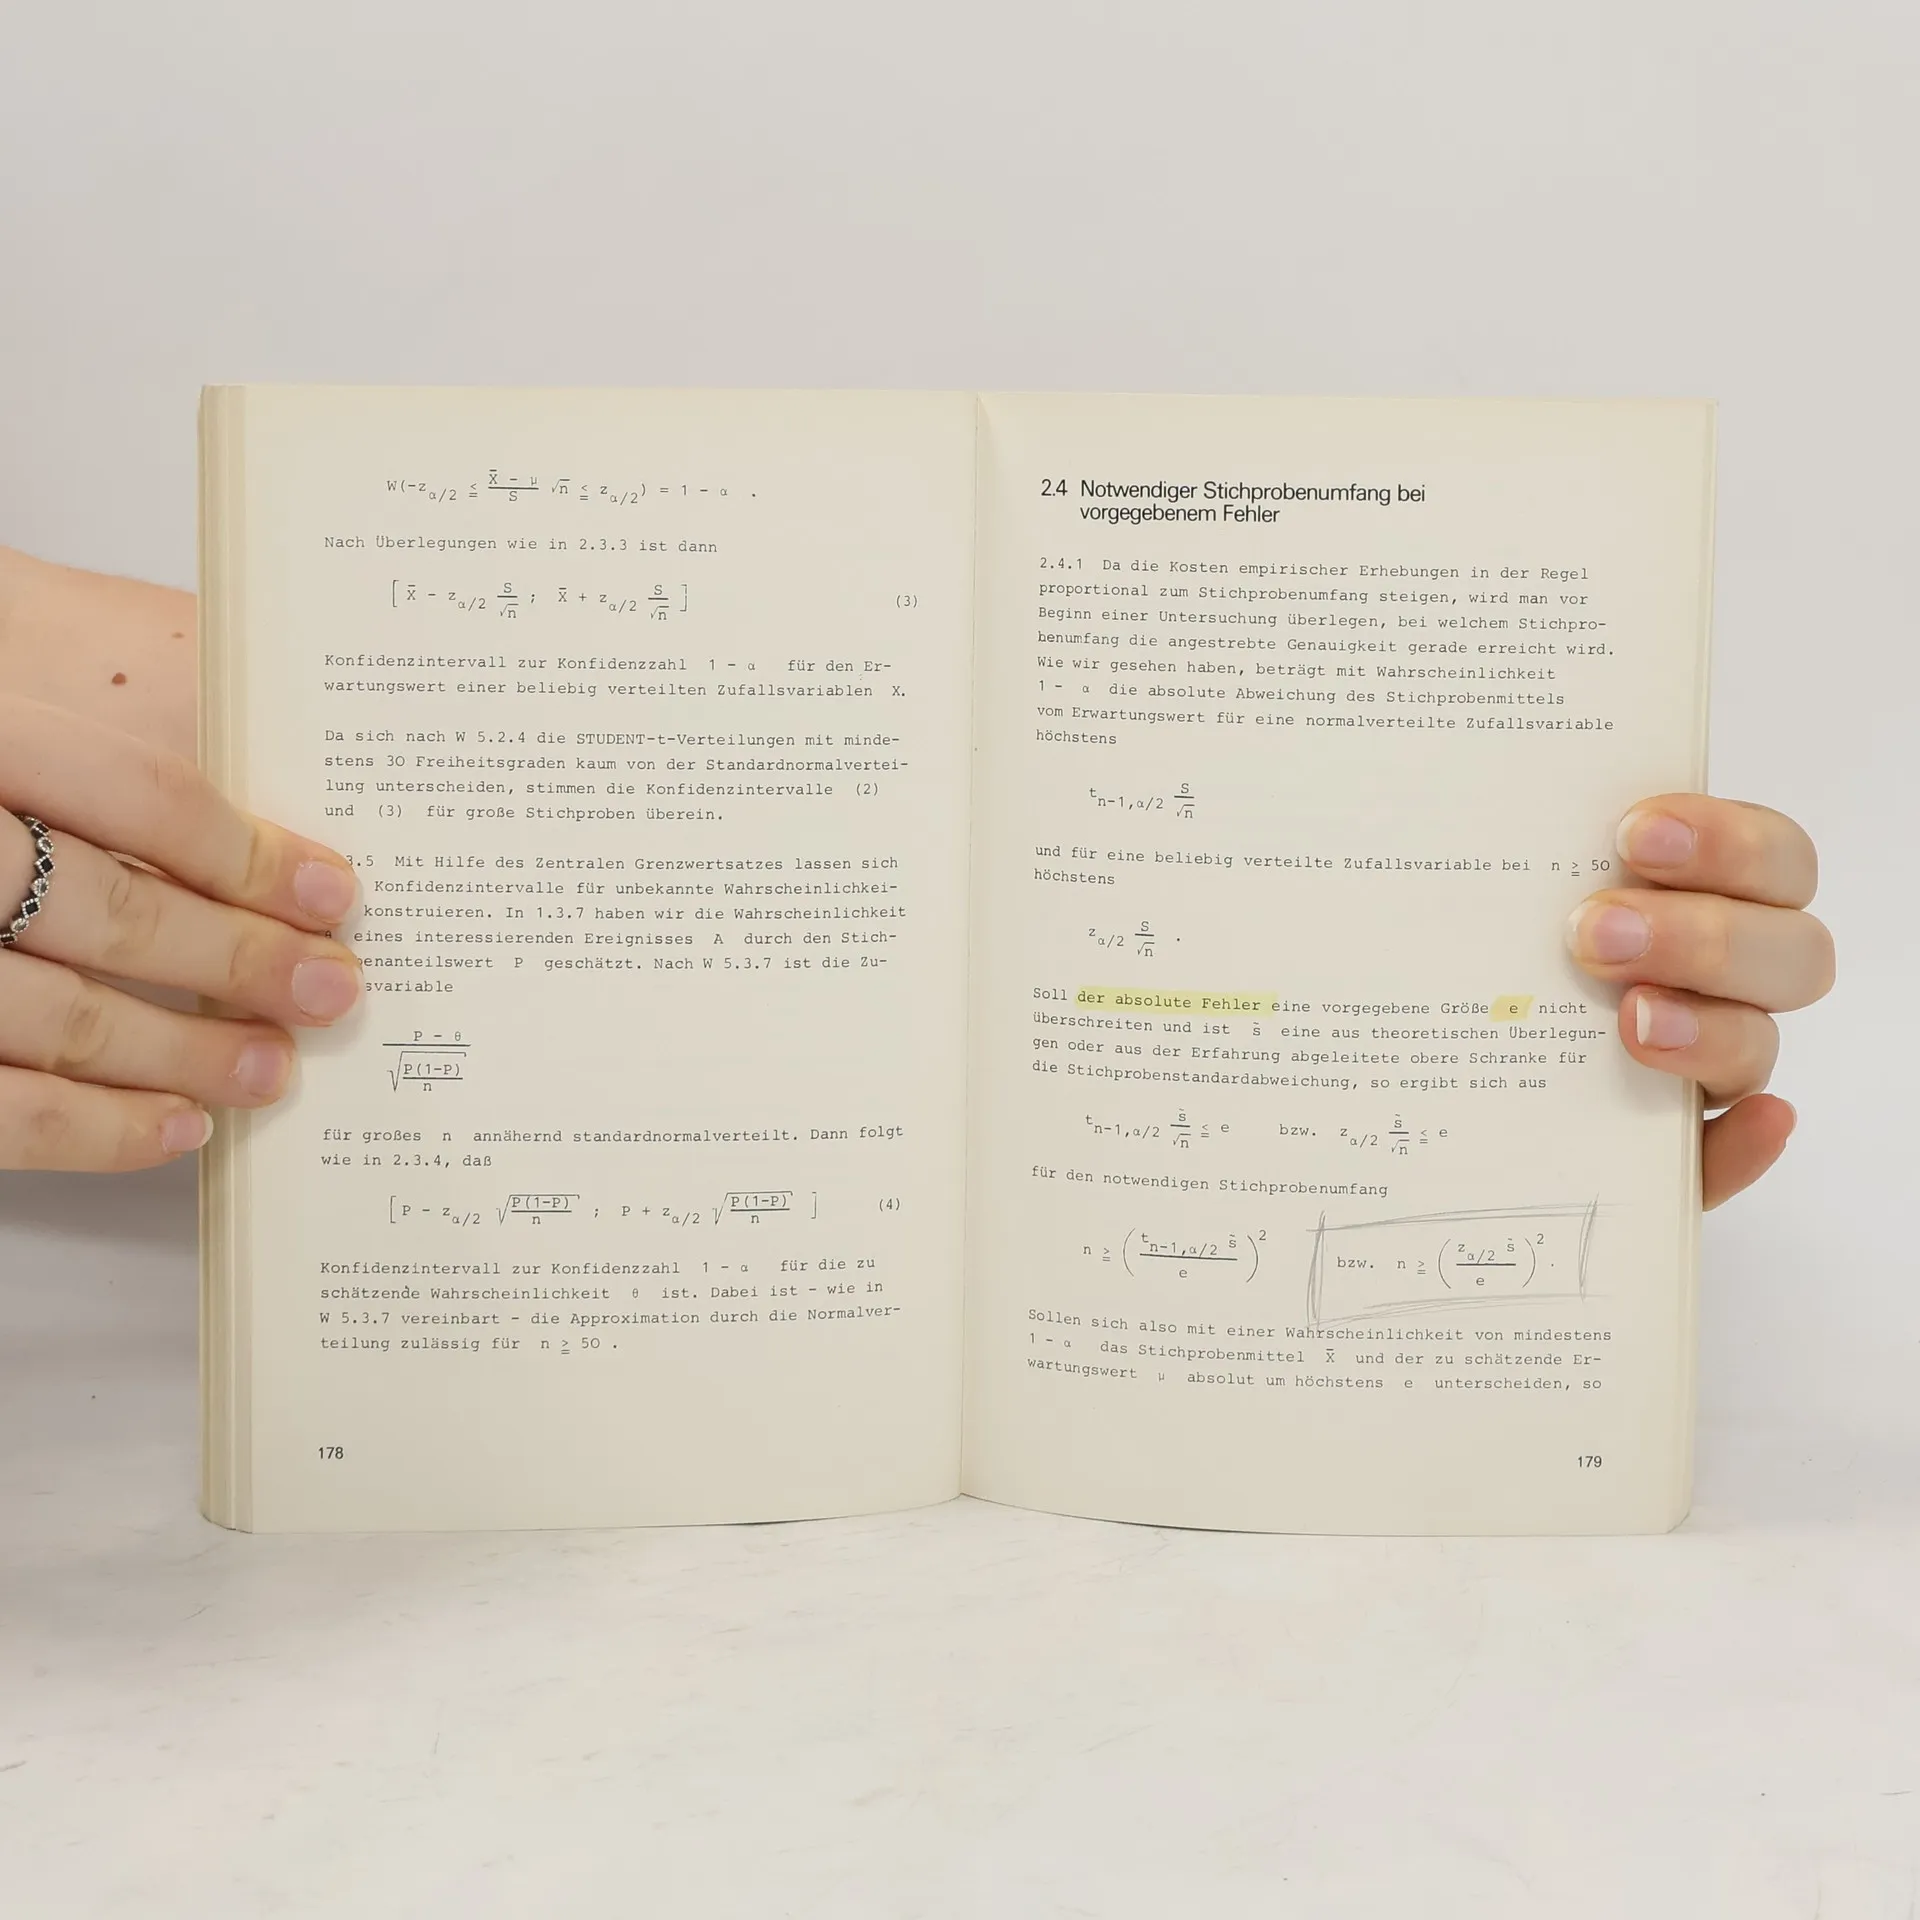 W(-z_{α/2} ≦ \frac{X̄ - μ}{S} √n ≦ z_{α/2}) = 1 - α .
Nach Überlegungen wie in 2.3.3 ist dann
[ X̄ - z_{α/2} \frac{S}{√n} ; X̄ + z_{α/2} \frac{S}{√n} ] (3)
Konfidenzintervall zur Konfidenzzahl 1 - α für den Er-
wartungswert einer beliebig verteilten Zufallsvariablen X.
Da sich nach W 5.2.4 die STUDENT-t-Verteilungen mit minde-
stens 30 Freiheitsgraden kaum von der Standardnormalvertei-
lung unterscheiden, stimmen die Konfidenzintervalle (2)
und (3) für große Stichproben überein.
3.5 Mit Hilfe des Zentralen Grenzwertsatzes lassen sich
Konfidenzintervalle für unbekannte Wahrscheinlichkei-
konstruieren. In 1.3.7 haben wir die Wahrscheinlichkeit
θ eines interessierenden Ereignisses A durch den Stich-
enanteilswert P geschätzt. Nach W 5.3.7 ist die Zu-
svariable
\frac{P - θ}{\sqrt{\frac{P(1-P)}{n}}}
für großes n annähernd standardnormalverteilt. Dann folgt
wie in 2.3.4, daß
[ P - z_{α/2} \sqrt{\frac{P(1-P)}{n}} ; P + z_{α/2} \sqrt{\frac{P(1-P)}{n}} ] (4)
Konfidenzintervall zur Konfidenzzahl 1 - α für die zu
schätzende Wahrscheinlichkeit θ ist. Dabei ist - wie in
W 5.3.7 vereinbart - die Approximation durch die Normalver-
teilung zulässig für n ≧ 50 .
178
2.4 Notwendiger Stichprobenumfang bei
vorgegebenem Fehler
2.4.1 Da die Kosten empirischer Erhebungen in der Regel
proportional zum Stichprobenumfang steigen, wird man vor
Beginn einer Untersuchung überlegen, bei welchem Stichpro-
benumfang die angestrebte Genauigkeit gerade erreicht wird.
Wie wir gesehen haben, beträgt mit Wahrscheinlichkeit
1 - α die absolute Abweichung des Stichprobenmittels
vom Erwartungswert für eine normalverteilte Zufallsvariable
höchstens
t_{n-1,α/2} \frac{S}{√n}
und für eine beliebig verteilte Zufallsvariable bei n ≧ 50
höchstens
z_{α/2} \frac{S}{√n} .
Soll der absolute Fehler eine vorgegebene Größe e nicht
überschreiten und ist s̃ eine aus theoretischen Überlegun-
gen oder aus der Erfahrung abgeleitete obere Schranke für
die Stichprobenstandardabweichung, so ergibt sich aus
t_{n-1,α/2} \frac{s̃}{√n} ≦ e bzw. z_{α/2} \frac{s̃}{√n} ≦ e
für den notwendigen Stichprobenumfang
n ≧ (\frac{t_{n-1,α/2} s̃}{e})^2 bzw. n ≧ (\frac{z_{α/2} s̃}{e})^2 .
Sollen sich also mit einer Wahrscheinlichkeit von mindestens
1 - α das Stichprobenmittel X̄ und der zu schätzende Er-
wartungswert μ absolut um höchstens e unterscheiden, so
179